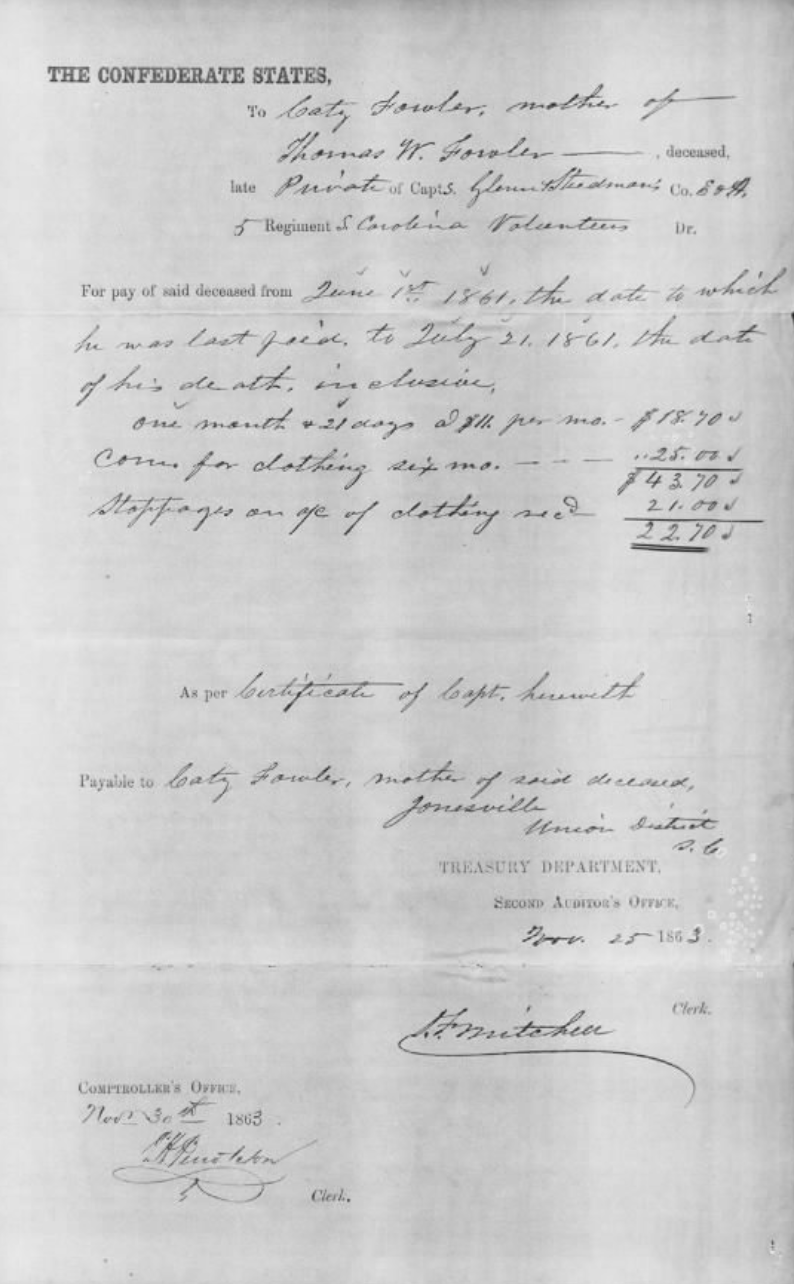 THE CONFEDERATE STATES,
To Caty Fowler, mother of
Thomas W. Fowler — , deceased,
late Private of Capts. Glenn & Steadman's Co. E or A.
5 Regiment S Carolina Volunteers Dr.
For pay of said deceased from June 1st. 1861, the date to which
he was last paid, to July 21. 1861, the date
of his death, inclusive,
one month & 21 days @ $11. per mo. - $18.70
Com. for clothing six mo. - - - „ 25.00
$43.70
Stoppages on a/c of clothing recd 21.00
22.70
As per Certificate of Capt. herewith
Payable to Caty Fowler, mother of said deceased,
Jonesville
Union District
S. C
TREASURY DEPARTMENT,
SECOND AUDITOR'S OFFICE,
Nov. 25 1863.
Clerk.
Mitchell
COMPTROLLER'S OFFICE,
Nov. 30th 1863.
Pendleton
Clerk.